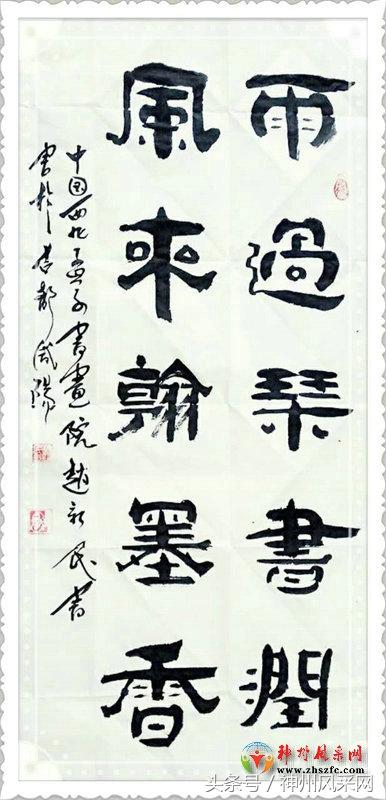 雨過琴書潤
風來翰墨香
中国西北孟子書畫院趙新民書
書於古都咸陽
神州風采网
www.zhszfc.com
头条号/神州风采网